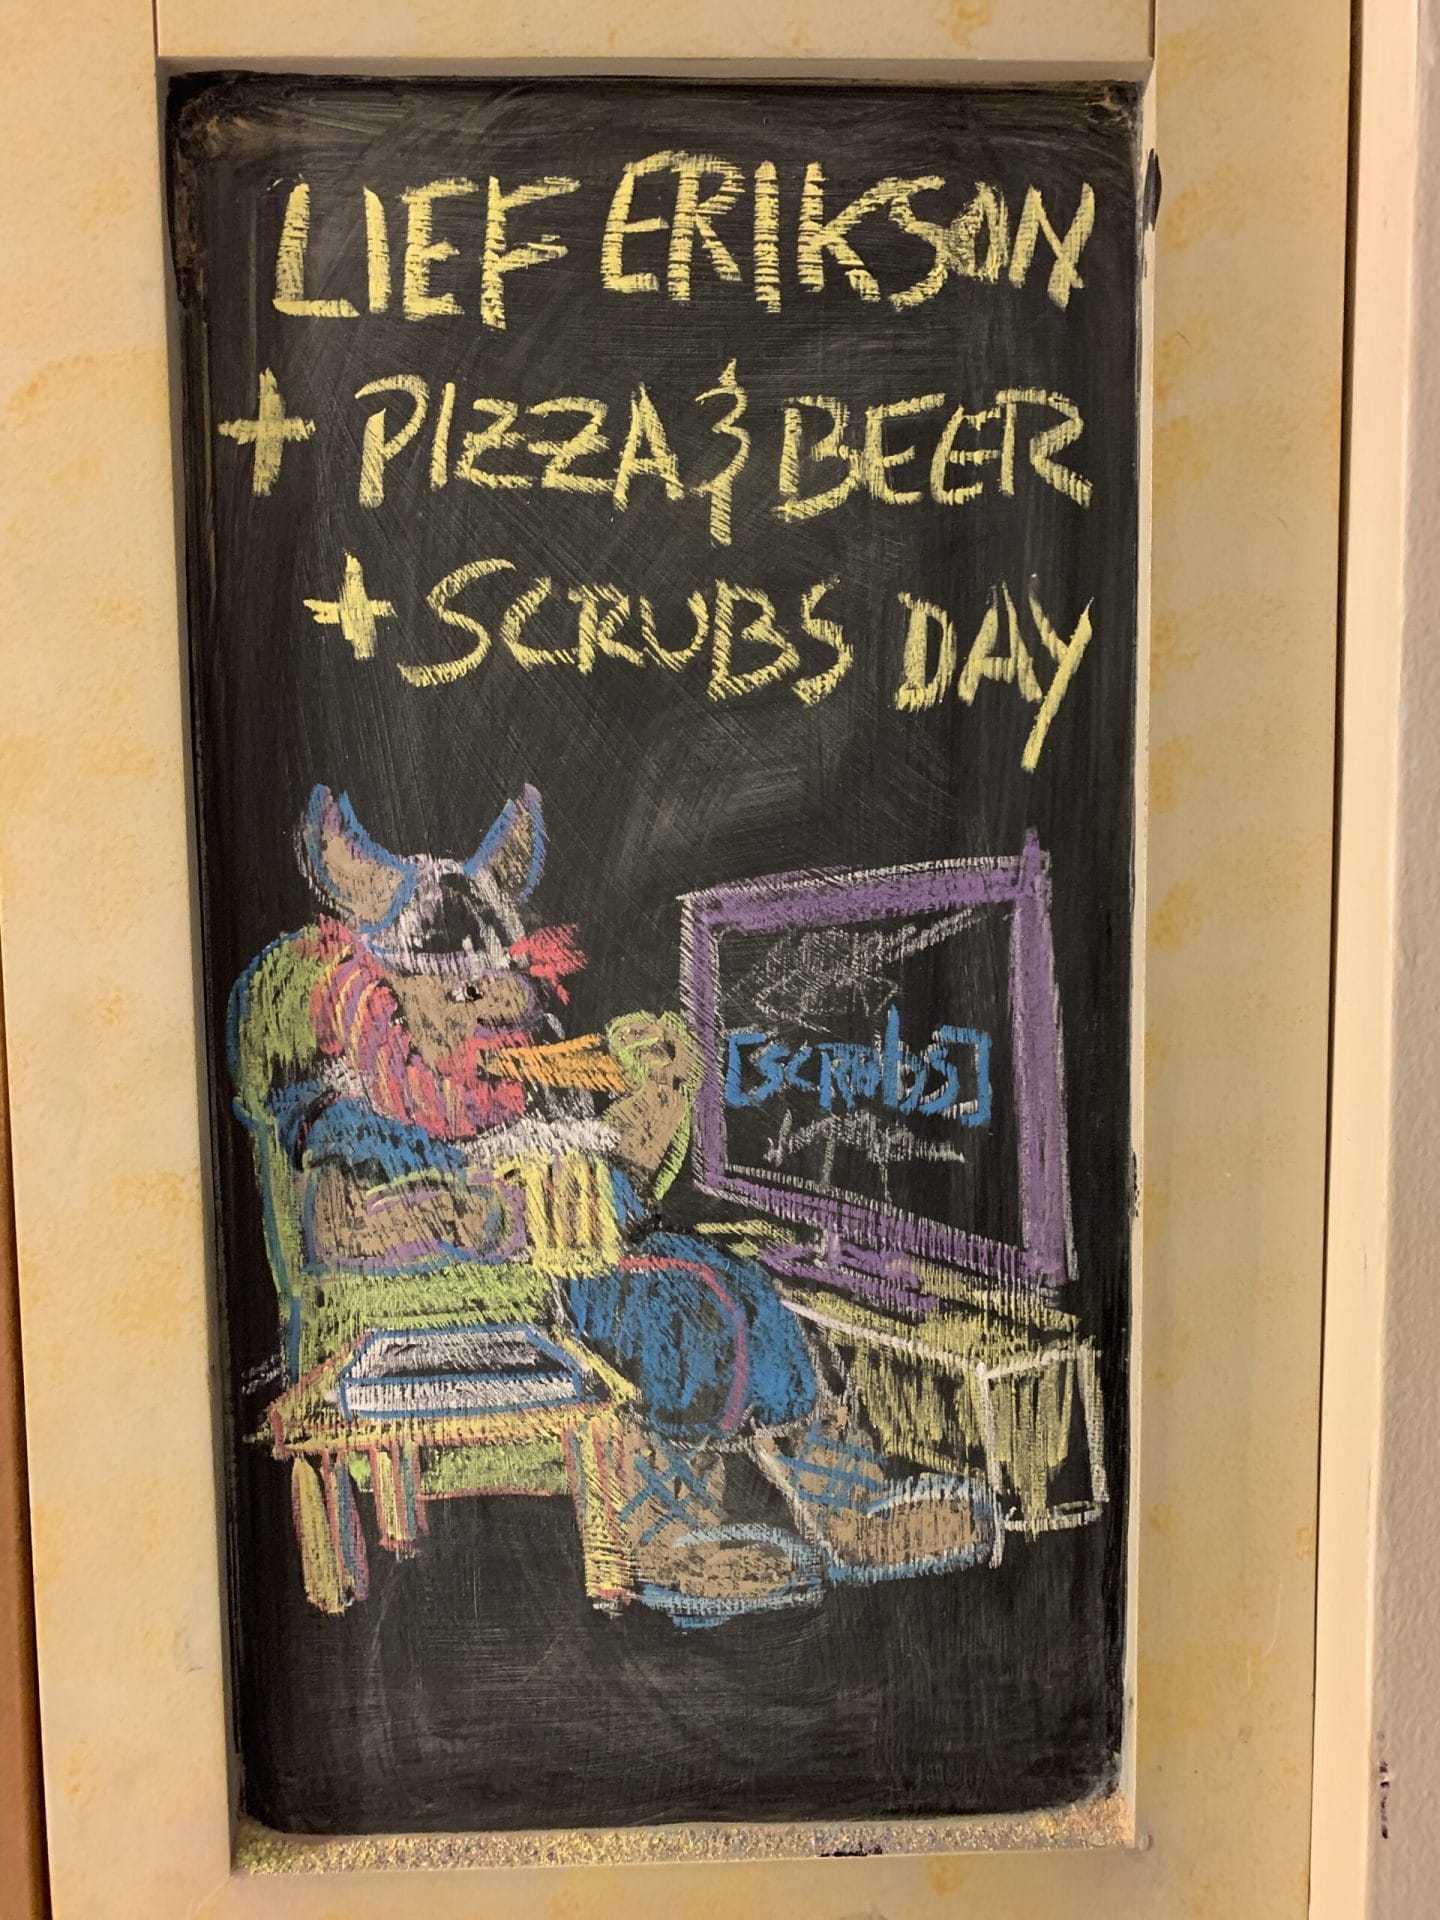 LIEF ERIKSON
+ PIZZA & BEER
+ SCRUBS DAY
[scRubs]